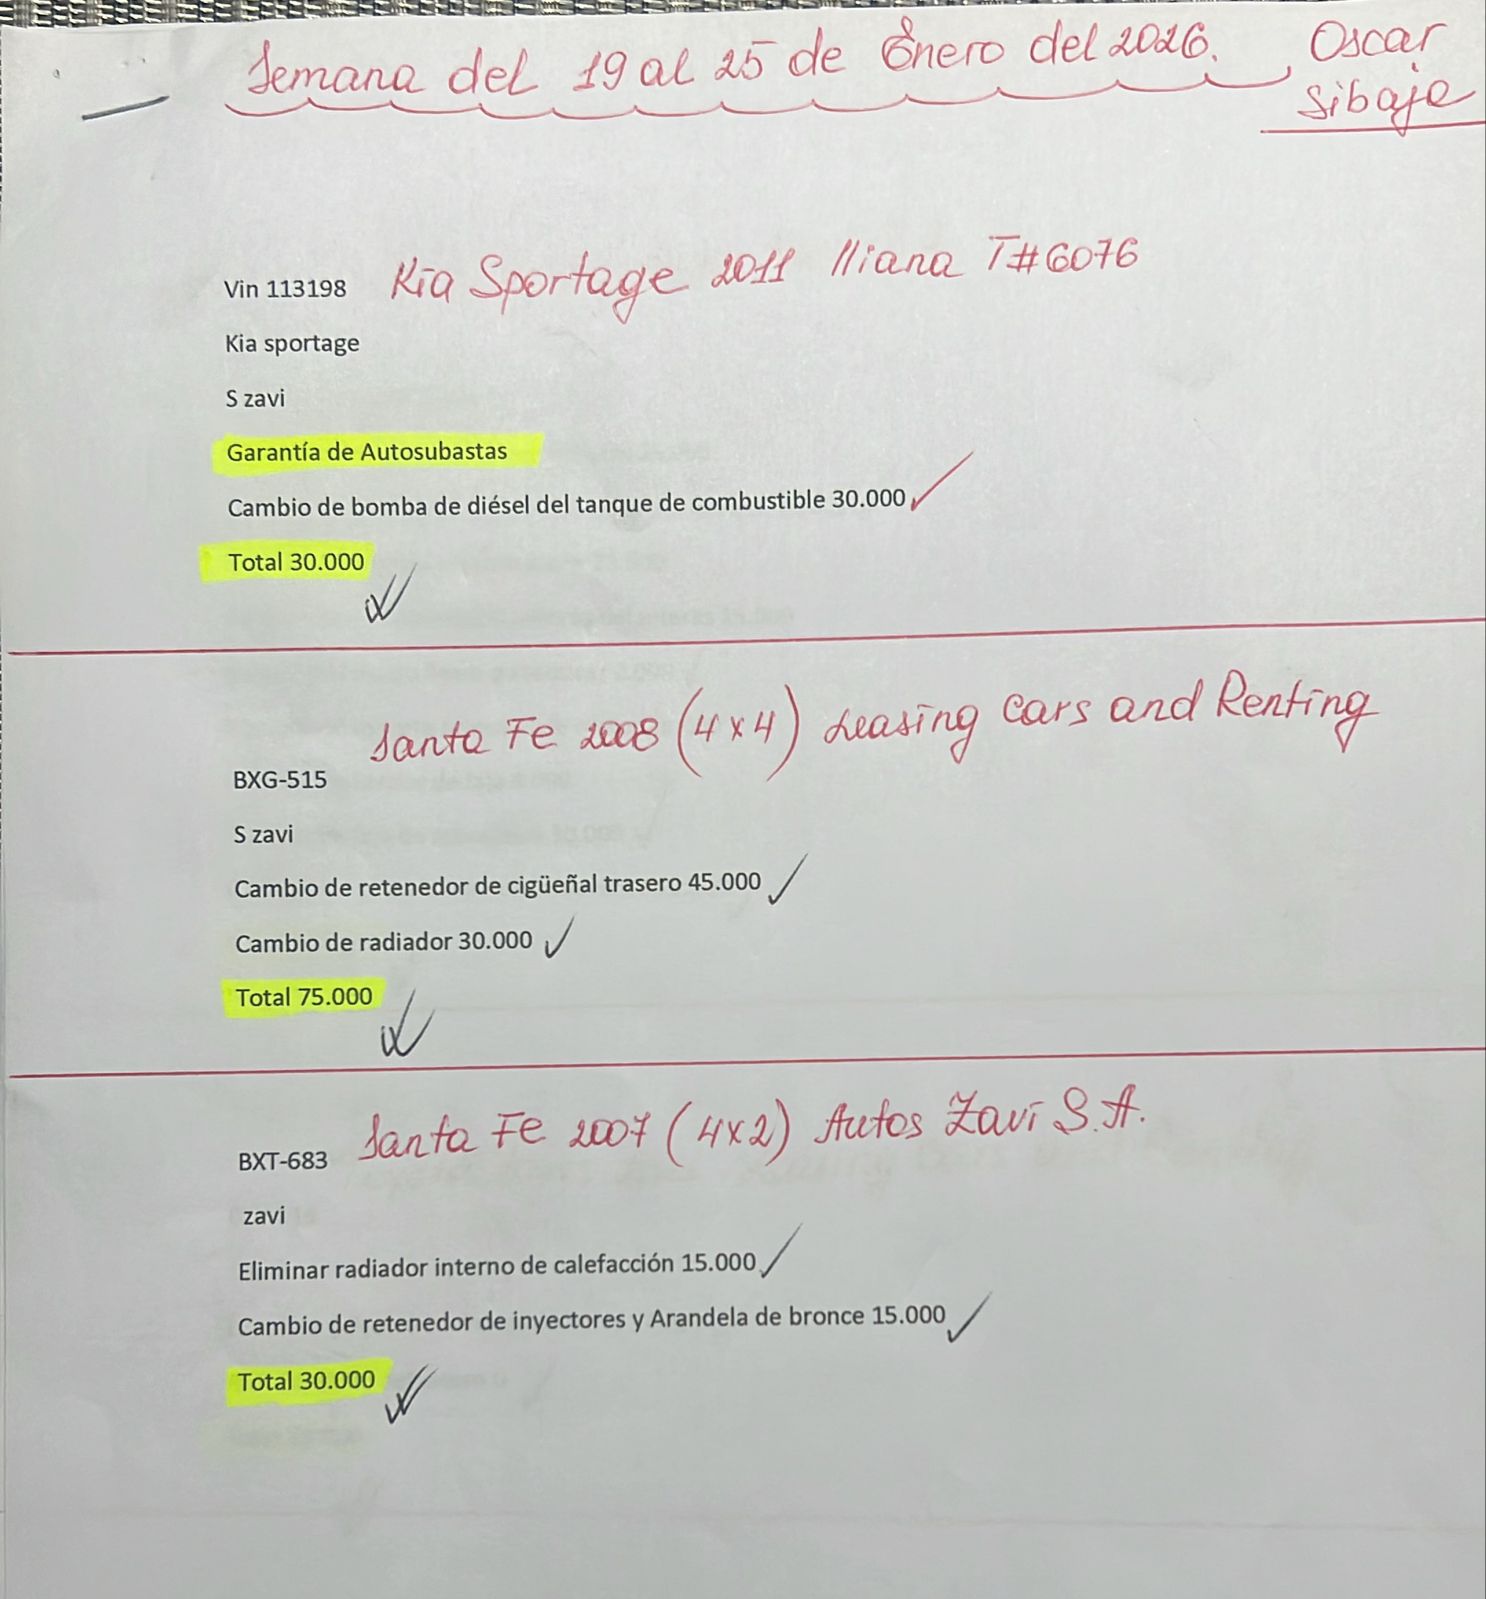 Semana del 19 al 25 de Enero del 2026. Oscar
Sibaje
Vin 113198 Kia Sportage 2011 Iliana T#6076
Kia sportage
S zavi
Garantía de Autosubastas
Cambio de bomba de diésel del tanque de combustible 30.000
Total 30.000
Santa Fe 2008 (4x4) Leasing Cars and Renting
BXG-515
S zavi
Cambio de retenedor de cigüeñal trasero 45.000
Cambio de radiador 30.000
Total 75.000
Santa Fe 2007 (4x2) Autos Zavi S.A.
BXT-683
zavi
Eliminar radiador interno de calefacción 15.000
Cambio de retenedor de inyectores y Arandela de bronce 15.000
Total 30.000